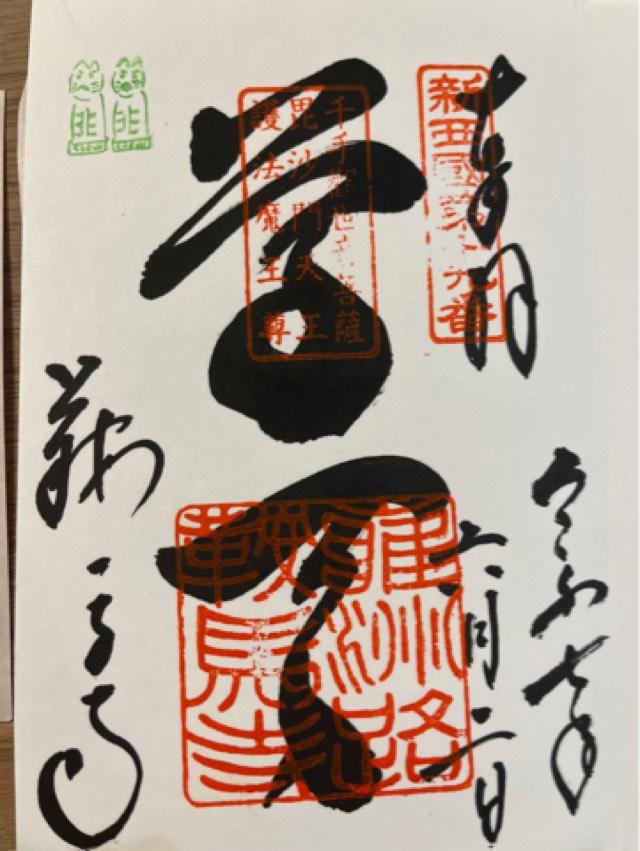 新西國第十九番
令和七年
六月二日
千手觀世音菩薩
毘沙門天王
護法魔王尊
尊天
鞍馬寺
鞍馬寺